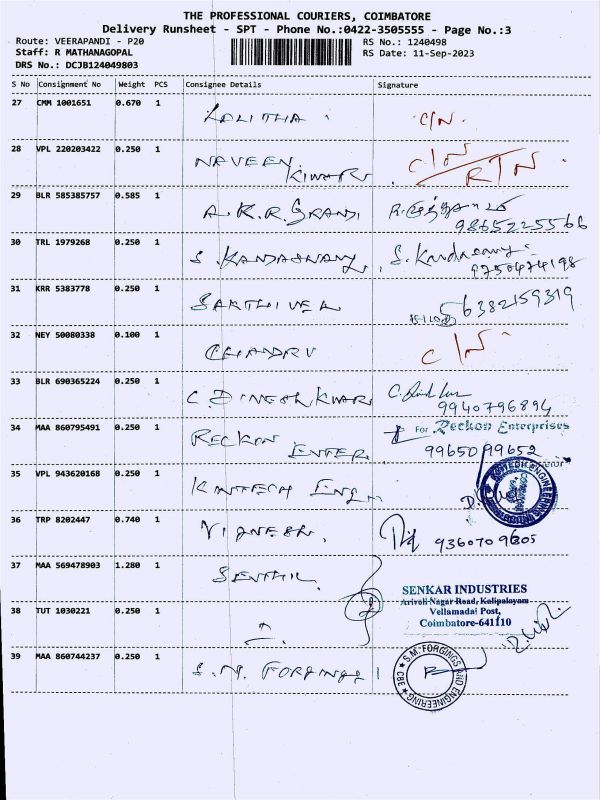 THE PROFESSIONAL COURIERS, COIMBATORE
Delivery Runsheet - SPT - Phone No.:0422-3505555 - Page No.:3
Route: VEERAPANDI - P20 RS No.: 1240498
Staff: R MATHANAGOPAL RS Date: 11-Sep-2023
DRS No.: DCJB124049803
S No Consignment No Weight PCS Consignee Details Signature
27 CMM 1001651 0.670 1 LALITHA C/N.
28 VPL 220203422 0.250 1 NAVEEN KUMAR C/N RTN
29 BLR 585385757 0.585 1 A.K.R. GRAND 9865225566
30 TRL 1979268 0.250 1 S. KANDASWAMY S. Kandasamy
9750474198
31 KRR 5383778 0.250 1 SAKTHIVEL 6382159319
32 NEY 50080338 0.100 1 CHANDRU C/N
33 BLR 690365224 0.250 1 C. DINESH KUMAR
9940796894
34 MAA 860795491 0.250 1 RECKON ENTER For Reckon Enterprises
9965099652
35 VPL 943620168 0.250 1 KANTECH ENGG
36 TRP 8202447 0.740 1 VIGNESH. 9360709605
37 MAA 569478903 1.280 1 SENTHIL
SENKAR INDUSTRIES
Arivoli Nagar Road, Kalipalayam
Vellamadai Post,
Coimbatore-641110
38 TUT 1030221 0.250 1
39 MAA 860744237 0.250 1 S.M. FORGINGS S.M. FORGINGS AND ENGINEERING CBE